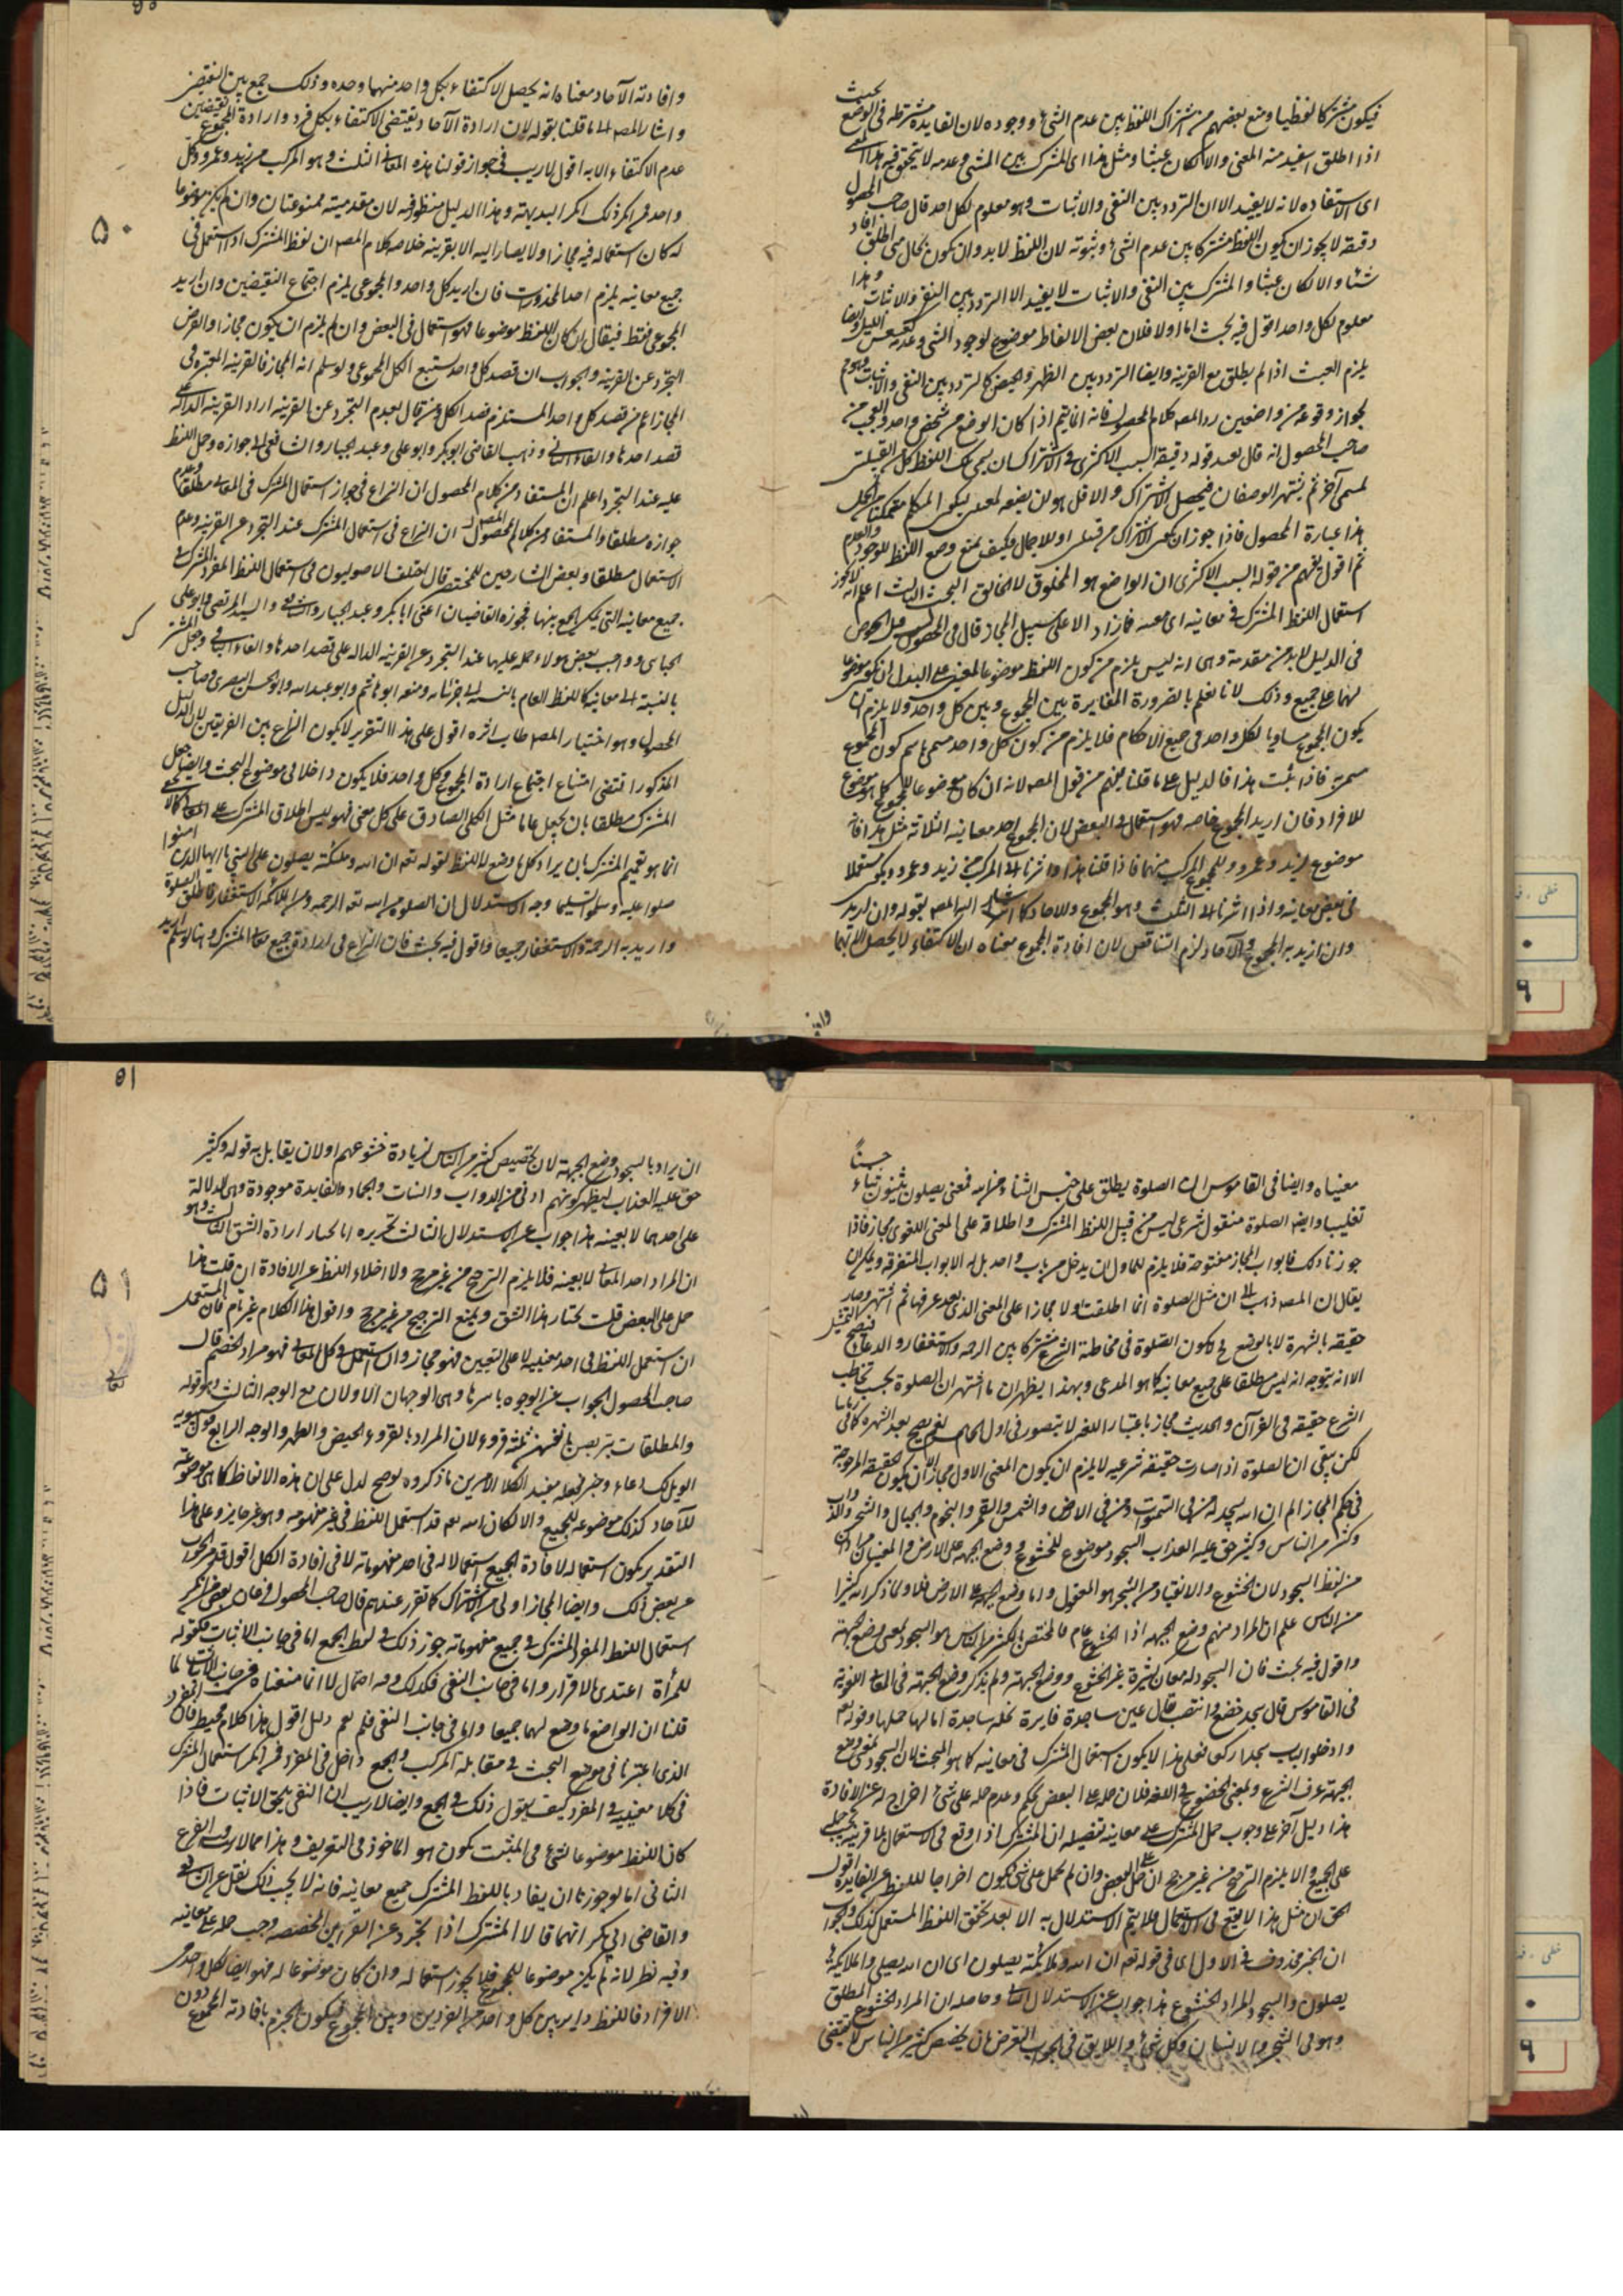 فيكون مشتركا لفظيا ومنع بعضهم من اشتراك اللفظ بين عدم الشئ ووجوده لان الفايدة مشترطه فى الوضع بحيث
اذا اطلق استفيد منه المعنى والا لكان عبثا ومثل هذا اى المشترك بين الشئ وعدمه لا يتحقق فيه هذا المعنى
اى الاستفاده لانه لا يفيد الا ان التردد بين النفى والاثبات وهو معلوم لكل احد قال صاحب المحصول
دقيقة لا يجوز ان يكون اللفظ مشتركا بين عدم الشئ وثبوته لان اللفظ لابد وان يكون بحال متى اطلق افاد
شئا والا لكان عبثا والمشترك بين النفى والاثبات لا يفيد الا التردد بين النفى والاثبات وهذا
معلوم لكل واحد اقول فيه بحث اما اولا فلان بعض الالفاظ موضوع لوجود الشئ وعدمه كعسعس الليل وايضا
يلزم العبث اذا لم يطلق مع القرينه وايضا التردد بين الطهر والحيض كالتردد بين النفى والاثبات
لجواز وقوعه من واضعين رد المصه كلام المحصول فانه انما يتم اذا كان الوضع من شخص واحد والعجب من
صاحب المحصول انه قال بعد قوله دقيقة السبب الاكثرى فى الاشتراك ان يسمى تلك اللفظ كل القبيلتين
لمسمى آخر ثم يشتهر الوصفان فيحصل الاشتراك والاقل هو ان يضعه لمعنيين ليكون المتكلم متمكنا من التكلم
هذا عبارة المحصول فاذا جوز ان يكون الاشتراك من قبيلتين او للاجمال فكيف يمنع وضع اللفظ للوجود والعدم
ثم اقول يفهم من قوله السبب الاكثرى ان الواضع هو المخلوق لا الخالق البحث الثالث اعلم انه لا يجوز
استعمال اللفظ المشترك فى معانيه اى معنييه فما زاد الا على سبيل المجاز قال فى المحصول وليس قبل الخوض
فى الدليل لابد من مقدمة وهى انه ليس يلزم من كون اللفظ موضوعا لمعنيين على البدل ان يكون موضوعا
لهما على جميع وذلك لانا نعلم بالضرورة المغايرة بين المجموع وبين كل واحد ولا يلزم ان
يكون المجموع مساويا لكل واحد فى جميع الاحكام فلا يلزم من كون كل واحد مسمى باسم كون المجموع
مسمى به فاذا ثبت هذا فالدليل على ما قلنا يفهم من قول المصه لانه ان كان موضوعا للمجموع كما هو موضوع
للافراد فان اريد المجموع خاصه فهو استعمال فى البعض لان المجموع احد معانيه الثلاثة مثل هذا فانه
موضوع لزيد وعمرو وللمجموع المركب منهما فاذا قلنا هذا واشرنا الى المركب من زيد وعمرو يكون مستعملا
فى بعض معانيه واذا اشرنا الى الثلث وهو المجموع والاحاد كما اشار اليه المصه بقوله وان اريد
وان اريد به المجموع والآحاد لزم التناقض لان افادة المجموع معناه ان الاكتفاء لا يحصل الا بهما
وافادته الآحاد معناه انه يحصل الاكتفاء بكل واحد منهما وحده وذلك جمع بين النقيضين
واشار المصه الى ما قلنا بقوله لان ارادة الآحاد يقتضى الاكتفاء بكل فرد وارادة المجموع نقيضين
عدم الاكتفاء الا به اقول لا ريب فى جواز قولنا هذه المعانى الثلث وهو المركب من زيد وعمرو وكل
واحد فمن انكر ذلك انكر البديهة وهذا الدليل منظور فيه لان مقدميته ممنوعتان وان لم يكن موضوعا
له كان استعماله فيه مجازا ولا يصار اليه الا بقرينه خلاصه كلام المصه ان لفظ المشترك اذا استعمل فى
جميع معانيه يلزم احد المحذورات فان اريد كل واحد والمجموعى يلزم اجتماع النقيضين وان اريد
المجموعى فقط فيقال ان كان اللفظ موضوعا فهو استعمال فى البعض وان لم يلزم ان يكون مجازا والفرض
التجرد عن القرينه والجواب ان قصد كل واحد يستتبع الكل المجموعى ولو سلم انه المجاز فالقرينه المعتبرة فى
المجاز اعم من قصد كل واحد المستلزم قصد الكل ومن قال بعدم التجرد عن القرينه اراد القرينه الدالة على
قصد احدها والغاء الثانى وذهب القاضى ابوبكر وابو على وعبد الجبار والشافعى الى جوازه وحمل اللفظ
عليه عند التجرد اعلم ان المستفاد من كلام المحصول ان النزاع فى جواز استعمال المشترك فى المعانى مطلقا وعدم
جوازه مطلقا والمستفاد من كلام المحصول المصه ان النزاع فى استعمال المشترك عند التجرد عن القرينه وعدم
الاستعمال مطلقا وبعض الشارحين للمختصر قال اختلف الاصوليون فى استعمال اللفظ المفرد المشترك فى
جميع معانيه التى يمكن الجمع بينها فجوزه القاضيان اعنى ابا بكر وعبد الجبار والشافعى والسيد المرتضى وابو على
الجبائى وواجب بعض هولاء حمله عليها عند التجرد عن القرينه الداله على قصد احدها والغاء الباقى وجعل المشترك
بالنسبة الى معانيه كاللفظ العام بالنسبة الى جزئياته ومنعه ابو هاشم وابو عبد الله وابو الحسن البصرى وصاحب
المحصول وهو اختيار المصه طاب ثراه اقول على هذا التقرير لا يكون النزاع بين الفريقين لان الدليل
المذكور اقتضى امتناع اجتماع ارادة المجموع وكل واحد فلا يكون داخلا فى موضوع البحث وايضا جعل
المشترك مطلقا بان يجعل عاما مثل الكلى الصادق على كل معنى فهو ليس اطلاق المشترك على المعانى
انما هو تعميم المشترك بان يراد كل ما وضع له اللفظ لقوله تعه ان الله وملئكته يصلون على النبى يا ايها الذين امنوا
صلوا عليه وسلموا تسليما وجه الاستدلال ان الصلوة من الله تعه الرحمه ومن الملائكه الاستغفار فاطلق الصلوة
واريد به الرحمة والاستغفار جميعا واقول فيه بحث فان النزاع فى ارادة جميع معانى المشترك
٥٠
وافا
معنياه وايضا فى القاموس ان الصلوة يطلق على حسن الثناء من الله فمعنى يصلون يثنون ثناء حسنًا
تغليبا وايضه الصلوة منقول شرعى ليس من قبيل اللفظ المشترك واطلاقه على المعنى اللغوى مجاز فاذا
جوزنا ذلك فابواب المجاز مفتوحة فلا يلزم لمحاول ان يدخل من باب واحد بل له الابواب المتفرقة ويمكن ان
يقال ان المصه ذهب الى ان مثل الصلوة انما اطلقت اولا مجازا على المعنى الذى بعد عرفها ثم اشتهر وصار
حقيقه بالشهرة لا بالوضع فح لا يكون الصلوة فى مخاطبة الشرع مشتركا بين الرحمه والاستغفار والدعاء فيصح التمثيل
الا انه يتوجه انه ليس مطلقا على جميع معانيه كما هو المدعى وبهذا يظهر ان ما اشتهر ان الصلوة بحسب تخاطب
الشرع حقيقه فى القرآن والحديث مجاز باعتبار اللغه لا يتصور فى اول الكلام نعم يصح بعد الشهرة كما فى زماننا
لكن بقى ان الصلوة اذا صارت حقيقة شرعيه لا يلزم ان يكون المعنى الاول مجازا الا ان يكون الحقيقة المرجوحة
فى حكم المجاز الم ان الله يسجد له من فى السموت ومن فى الارض والشمس والقمر والنجوم والجبال والشجر والدواب
وكثير من الناس وكثير حق عليه العذاب السجود موضوع للخشوع ووضع الجبهه على الارض والمعنيان مرادان
من لفظ السجود لان الخشوع والانقياد من الشجر هو المعقول واما وضع الجبهه على الارض فلا ولما ذكر الله كثيرا
من الناس علم ان المراد منهم وضع الجبهه اذا الخشوع عام فالمختص بالكثير من الناس هو السجود بمعنى وضع الجبهة
واقول فيه بحث فان السجود له معان كثيرة غير الخشوع ووضع الجبهة ولم يذكر وضع الجبهة فى المعانى اللغوية
فى القاموس قال سجد خضع وانتصب قال عين ساجدة فايرة نخله ساجدة امالها حملها وقوله تعه
وادخلوا الباب سجدا ركعا فعلى هذا لا يكون استعمال المشترك فى معانيه كما هو المبحث لان السجود بمعنى وضع
الجبهة عرف الشرع وبمعنى الخضوع فى اللغه فلان حمله على البعض تحكم وعدم حمله على شئ اخراج له عن الافادة
هذا دليل آخر على وجوب حمل المشترك على معانيه تفصيله ان المشترك اذا وقع فى الاستعمال بلا قرينة يجب حمله
على الجميع والا يلزم الترجيح من غير مرجح ان حمل على البعض وان لم يحمل على شئ يكون اخراجا للفظ عن الفايدة اقول
الحق ان مثل هذا لا يقع فى الاستعمال فلا يتم الاستدلال به الا بعد تحقق اللفظ المستعمل كذلك والجواب
ان الخبر محذوف فى الاول اى فى قوله تعه ان الله وملائكته يصلون اى ان الله يصلى وملائكته
يصلون والسجود المراد الخشوع هذا جواب عن الاستدلال الثانى وحاصله ان المراد الخشوع المطلق
وهو فى الشجر والانسان وكل شئ واللايق فى الجواب التعرض بان تخصيص كثير من الناس لا يقتضى
٥١
ان يراد بالسجود وضع الجبهة لان تخصيص كثير من الناس لزيادة خشوعهم اولان يقابل به قوله وكثير
حق عليه العذاب ليظهر كونهم ادنى من الدواب والنبات والجماد والفايدة موجودة وهى الدلالة
على احدهما لا بعينه هذا جواب عن الاستدلال الثالث تحريره انا نختار ارادة الشق الثالث وهو
ان المراد احد المعانى لا بعينه فلا يلزم الترجيح من غير مرجح ولا اخلاء اللفظ عن الافادة ان قلت هذا
حمل على البعض قلت نختار هذا الشق ونمنع الترجيح من غير مرجح واقول هذا الكلام غير تام فان المستعمل
ان استعمل اللفظ فى احد معنييه لا على التعيين فهو مجاز وان استعمل فى كل المعانى فهو مراد الخصم قال
صاحب المحصول الجواب عن الوجوه باسرها وهى الوجهان الاولان مع الوجه الثالث وهو قوله
والمطلقات يتربصن بانفسهن ثلثة قروء لان المراد بالقروء الحيض والطهر والوجه الرابع قول سيبويه
الويل لك دعاء وخبر فجعله مفيد الكلا الامرين ما ذكروه لو صح لدل على ان هذه الالفاظ كما هى موضوعة
للآحاد كذلك موضوعه للجميع والا لكان الله تعه قد استعمل اللفظ فى غير مفهومه وهو غير جايز وعلى هذا
التقدير يكون استعماله لافادة الجميع استعمالا له فى احد مفهوماته لا فى افادة الكل اقول قد مر الجواب
عن بعض ذلك وايضا المجاز اولى من الاشتراك كما تقرر عندهم قال صاحب المحصول فرعان بعض من انكر
استعمال اللفظ المفرد المشترك فى جميع مفهوماته جوز ذلك فى لفظ الجمع اما فى جانب الاثبات فكقوله
للمرأة اعتدى بالاقرار واما فى جانب النفى فكذلك وفيه احتمال لانا انما منعناه فى جانب الاثبات لما
قلنا ان الواضع ما وضع لهما جميعا واما فى جانب النفى فلم يقم دليل اقول هذا كلام محيط فان المفرد
الذى اعتبرنا فى موضع البحث فى مقابلة المركب والجمع داخل فى المفرد فمن انكر استعمال المشترك
فى كلا معنييه فى المفرد كيف يقول ذلك فى الجمع وايضا لا ريب ان النفى يلحق الاثبات فاذا
كان اللفظ موضوعا لشئ فى المثبت يكون هو الماخوذ فى التعريف وهذا مما لا ريب فيه الفرع
الثانى انا لو جوزنا ان يفاد باللفظ المشترك جميع معانيه فانه لا يجب ذلك نقل عن الشافعى
والقاضى ابى بكر انهما قالا المشترك اذا تجرد عن القراين المخصصه وجب حمله على معانيه
وفيه نظر لانه ان لم يكن موضوعا للمجموع فلا يجوز استعماله وان كان موضوعا له فهو ايضا لكل واحد من
الافراد فاللفظ داير بين كل واحد من الفردين وبين المجموع فيكون الجزم بافادته المجموع دون
٥١